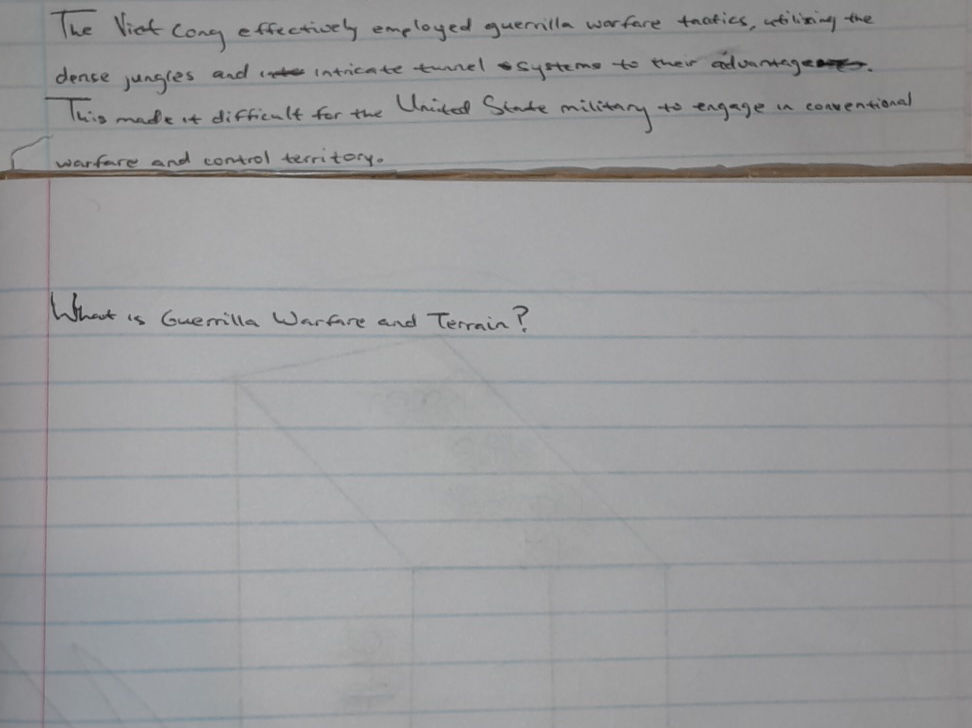 The Viet Cong effectively employed guerrilla warfare tactics, utilizing the
dense jungles and intricate tunnel systems to their advantage.
This made it difficult for the United State military to engage in conventional
warfare and control territory.
What is Guerrilla Warfare and Terrain?